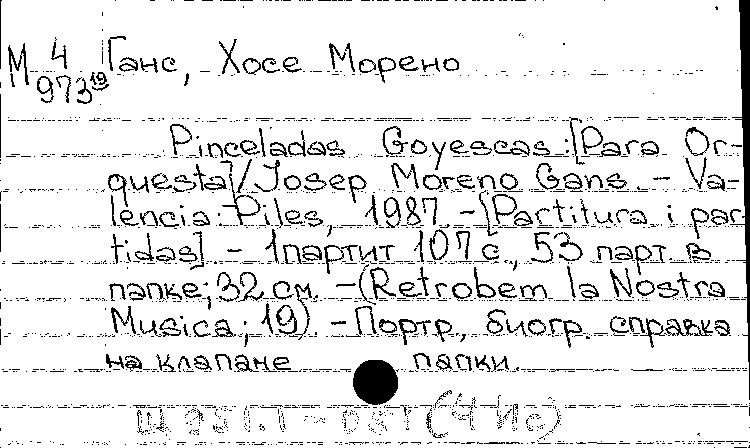 М 4 Ганс, Хосе Морено
973¹⁹
Pinceladas Goyescas:[Para Or-
questa]/Josep Moreno Gans. - Va-
lencia: Piles, 1987. -[Partitura i par
tidas] - 1партит 107 с., 53 парт. в
папке; 32 см. - (Retrobem la Nostra
Musica; 19). - Портр., биогр. справка
на клапане папки.
Щ 951.1-051 (4 Ис)